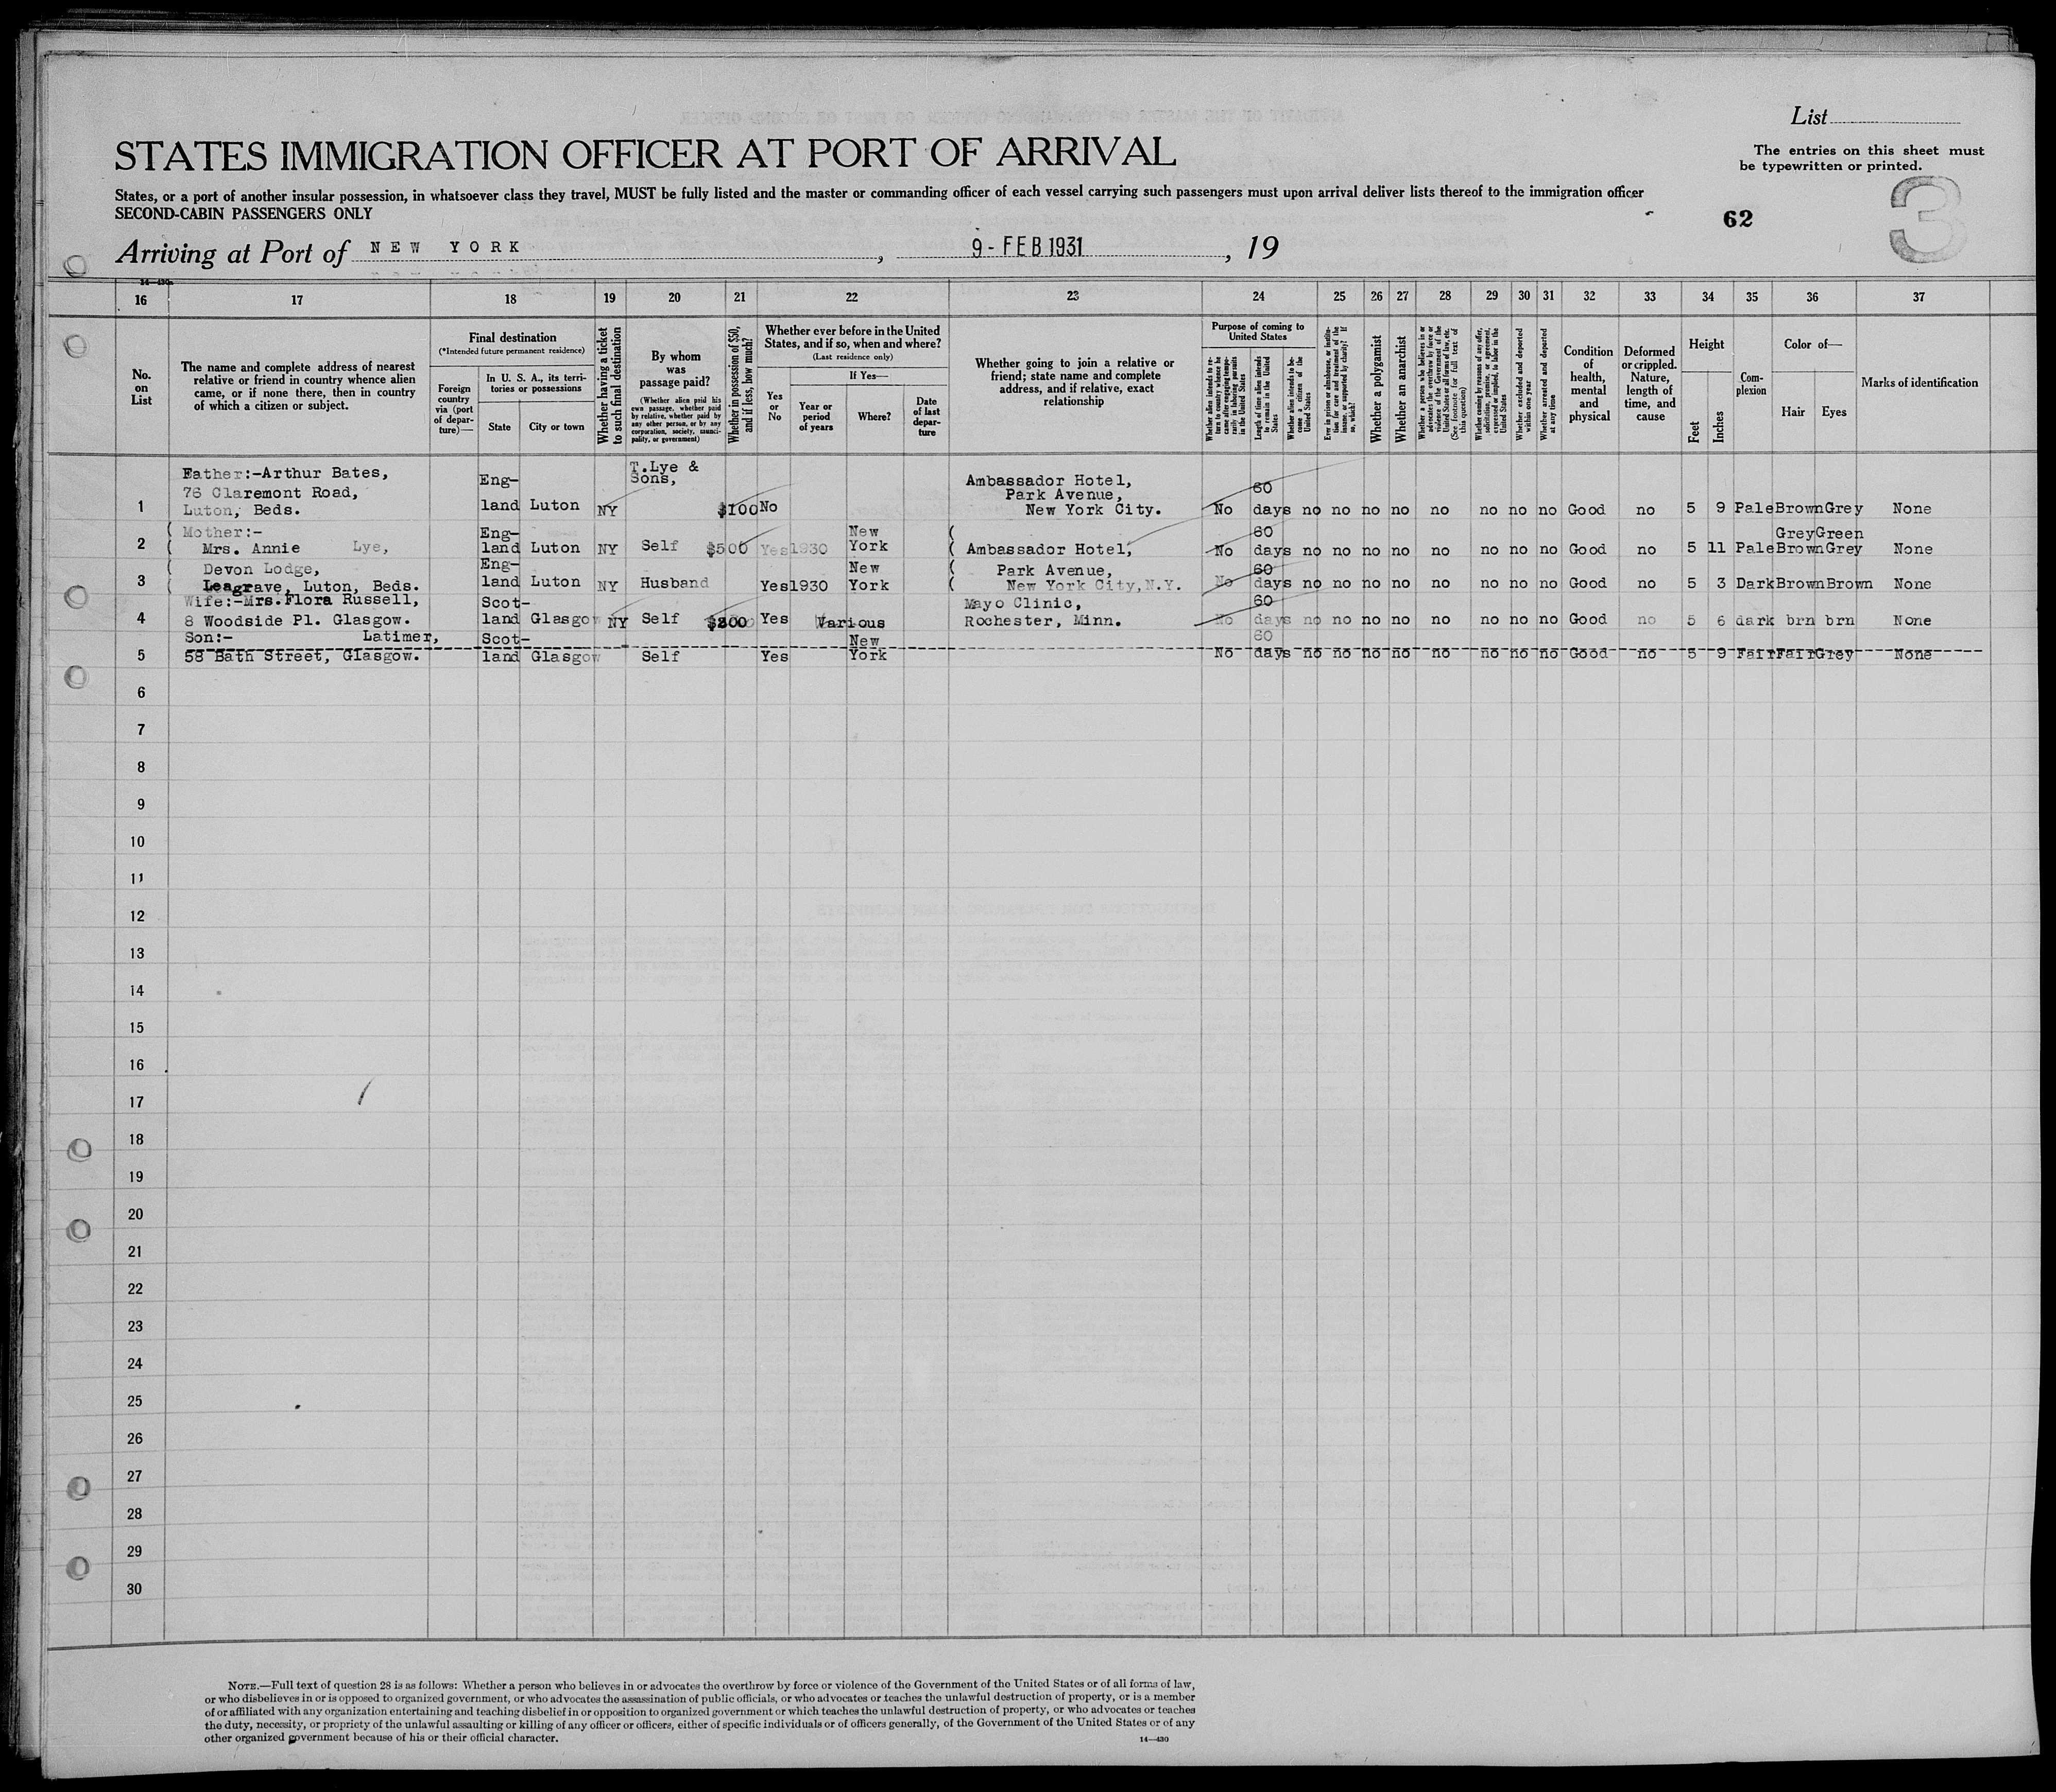 List
STATES IMMIGRATION OFFICER AT PORT OF ARRIVAL
The entries on this sheet must
be typewritten or printed.
States, or a port of another insular possession, in whatsoever class they travel, MUST be fully listed and the master or commanding officer of each vessel carrying such passengers must upon arrival deliver lists thereof to the immigration officer
SECOND-CABIN PASSENGERS ONLY
62
3
Arriving at Port of NEW YORK, 9 - FEB 1931, 19
14—430
16 17 18 19 20 21 22 23 24 25 26 27 28 29 30 31 32 33 34 35 36 37
No.
on
List
The name and complete address of nearest
relative or friend in country whence alien
came, or if none there, then in country
of which a citizen or subject.
Final destination
(*Intended future permanent residence)
Foreign
country
via (port
of depar-
ture)—
In U. S. A., its terri-
tories or possessions
State
City or town
Whether having a ticket
to such final destination
By whom
was
passage paid?
(Whether alien paid his
own passage, whether paid
by relative, whether paid by
any other person, or by any
corporation, society, munici-
pality, or government)
Whether in possession of $50,
and if less, how much?
Whether ever before in the United
States, and if so, when and where?
(Last residence only)
Yes
or
No
If Yes—
Year or
period
of years
Where?
Date
of last
depar-
ture
Whether going to join a relative or
friend; state name and complete
address, and if relative, exact
relationship
Purpose of coming to
United States
Whether alien intends to re-
turn to country whence he
came after engaging tempo-
rarily in laboring pursuits
in the United States
Length of time alien intends
to remain in the United
States
Whether alien intends to be-
come a citizen of the
United States
Ever in prison or almshouse, or institu-
tion for care and treatment of the
insane, or supported by charity? If
so, which?
Whether a polygamist
Whether an anarchist
Whether a person who believes in or
advocates the overthrow by force or
violence of the Government of the
United States or all forms of law, etc.
(See footnote for full text of
this question)
Whether coming by reasons of any offer,
solicitation, promise, or agreement,
expressed or implied, to labor in the
United States
Whether excluded and deported
within one year
Whether arrested and deported
at any time
Condition
of
health,
mental
and
physical
Deformed
or crippled.
Nature,
length of
time, and
cause
Height
Feet
Inches
Com-
plexion
Color of—
Hair
Eyes
Marks of identification
Father:-Arthur Bates, Eng- T.Lye & Ambassador Hotel,
76 Claremont Road, Sons, Park Avenue, 60
1 Luton, Beds. land Luton NY $100 No New York City. No days no no no no no no no no Good no 5 9 Pale Brown Grey None
Mother:- Eng- New 60 Grey Green
2 Mrs. Annie Lye, land Luton NY Self $500 Yes 1930 York Ambassador Hotel, No days no no no no no no no no Good no 5 11 Pale Brown Grey None
Devon Lodge, Eng- New Park Avenue, 60
3 Leagrave, Luton, Beds. land Luton NY Husband Yes 1930 York New York City, N.Y. No days no no no no no no no no Good no 5 3 Dark Brown Brown None
Wife:-Mrs.Flora Russell, Scot- Mayo Clinic, 60
4 8 Woodside Pl. Glasgow. land Glasgow NY Self Yes Various Rochester, Minn. No days no no no no no no no no Good no 5 6 dark brn brn None
Son:- Latimer, Scot- New 60
5 58 Bath Street, Glasgow. land Glasgow Self Yes York No days no no no no no no no no Good no 5 9 Fair Fair Grey None
6
7
8
9
10
11
12
13
14
15
16
17
18
19
20
21
22
23
24
25
26
27
28
29
30
NOTE.—Full text of question 28 is as follows: Whether a person who believes in or advocates the overthrow by force or violence of the Government of the United States or of all forms of law,
or who disbelieves in or is opposed to organized government, or who advocates the assassination of public officials, or who advocates or teaches the unlawful destruction of property, or is a member
of or affiliated with any organization entertaining and teaching disbelief in or opposition to organized government or which teaches the unlawful destruction of property, or who advocates or teaches
the duty, necessity, or propriety of the unlawful assaulting or killing of any officer or officers, either of specific individuals or of officers generally, of the Government of the United States or of any
other organized government because of his or their official character.
14—430